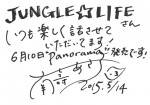 JUNGLE☆LIFE さん
いつも楽しく話させて
いただいてます!
6月10日"panorama"発売です!
2015.5/14